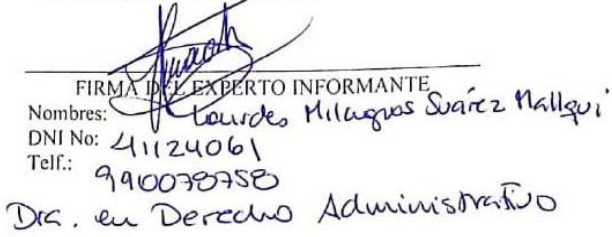 FIRMA DEL EXPERTO INFORMANTE
Nombres: Lourdes Milagros Suárez Mallqui
DNI No: 41124061
Telf.: 990078758
Dra. en Derecho Administrativo